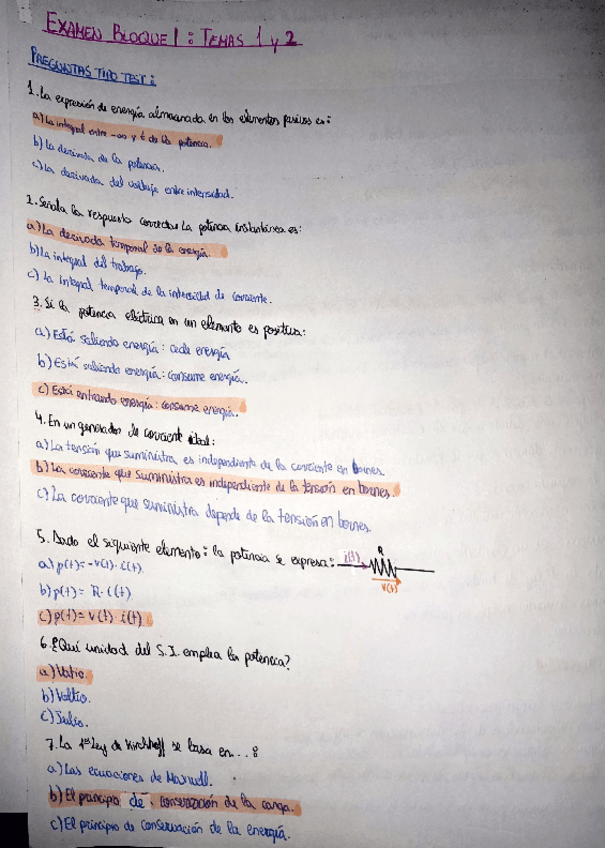 EXAMEN BLOQUE 1: TEMAS 1 y 2
PREGUNTAS TIPO TEST:
1. La expresión de energía almacenada en los elementos pasivos es:
a) La integral entre -∞ y t de la potencia.
b) La derivada de la potencia.
c) La derivada del voltaje entre intensidad.
2. Señala la respuesta correcta: La potencia instantánea es:
a) La derivada temporal de la energía.
b) La integral del trabajo.
c) La integral temporal de la intensidad de corriente.
3. Si la potencia eléctrica en un elemento es positiva:
a) Está saliendo energía: cede energía
b) Está saliendo energía: consume energía.
c) Está entrando energía: consume energía.
4. En un generador de corriente ideal:
a) La tensión que suministra es independiente de la corriente en bornes.
b) La corriente que suministra es independiente de la tensión en bornes.
c) La corriente que suministra depende de la tensión en bornes.
5. Dado el siguiente elemento: la potencia se expresa: i(t) R v(t)
a) p(t) = -v(t) · i(t)
b) p(t) = R · i(t)
c) p(t) = v(t) · i(t)
6. ¿Qué unidad del S.I. emplea la potencia?
a) Vatio.
b) Voltio.
c) Julio.
7. La 1ª Ley de Kirchhoff se basa en...:
a) Las ecuaciones de Maxwell.
b) El principio de conservación de la carga.
c) El principio de conservación de la energía.